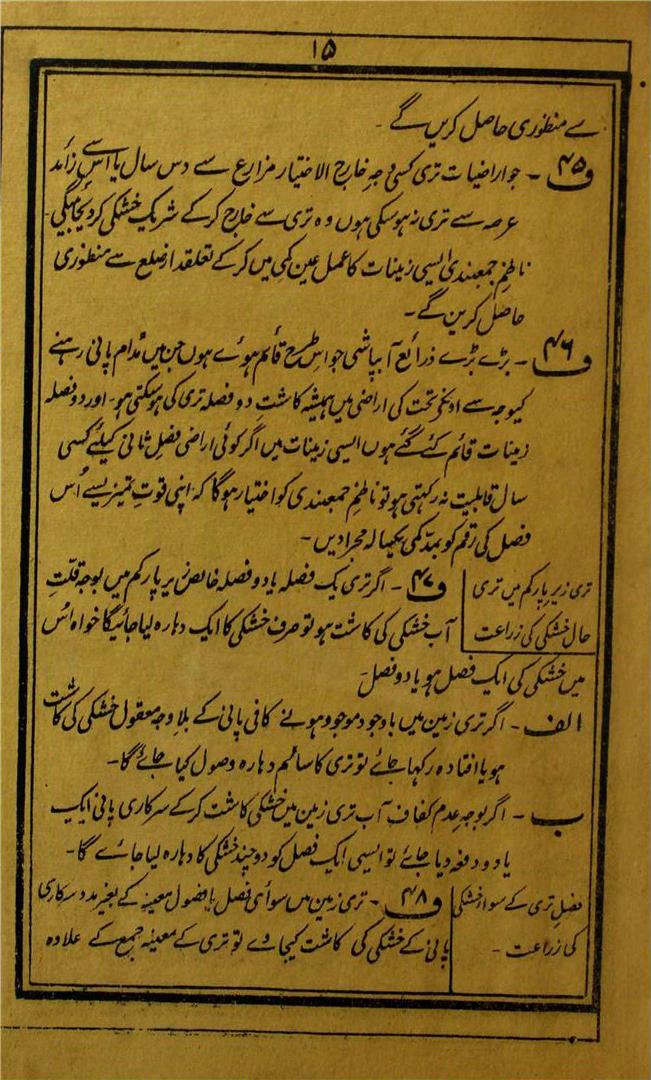 ۱۵
سے منظوری حاصل کریں گے ۔
ف۴۵ ۔ جو اراضیات تری کسی وجہ خارج الاختیار مزارع سے دس سال یا اس سے زائد
عرصہ سے تری نہ ہوسکی ہوں وہ تری سے خارج کرکے شریک خشکی کردیجائینگی ۔
ناظمِ جمعبندی ایسی زمینات کا عمل عین کمی میں کرکے تعلقدار ضلع سے منظوری
حاصل کرین گے ۔
ف۴۶ ۔ بڑے بڑے ذرائع آبپاشی جو اس طرح قائم ہوئے ہوں جن میں مُدام پانی رہنے
کیوجہ سے اونکی تحت کی اراضی میں ہمیشہ کاشت دو فصلہ تری کی ہوسکتی ہو ۔ اور دو فصلہ
زمینات قائم کئے گئے ہوں ایسی زمینات میں اگر کوئی اراضی فصل ثانی کیلئے کسی
سال قابلیت نہ رکہتی ہو تو ناظم جمعبندی کو اختیار ہوگا کہ اپنی قوتِ تمیز یسے اُس
فصل کی رقم کو بمد کمی یکسالہ مجرا دیں ۔
تری زیر پارکم میں تری
حال خشکی کی زراعت
ف۴۷ ۔ اگر تری یک فصلہ یا دو فصلہ خالص زیر پارکم میں بوجہ قلّتِ
آب خشکی کی کاشت ہو تو صرف خشکی کا ایک دہارہ لیا جائیگا خواہ اُس
میں خشکی کی ایک فصل ہو یا دو فصل
الف ۔ اگر تری زمین میں باوجود موجود ہونے کافی پانی کے بلا وجہ معقول خشکی کی کاشت
ہو یا افتادہ رکہا جائے تو تری کا سالم دہارہ وصول کیا جائے گا ۔
ب ۔ اگر بوجہ عدم کفاف آب تری زمین میں خشکی کاشت کرکے سرکاری پانی ایک
یا دو دفعہ دیا جائے تو ایسی ایک فصل کو دوچند خشکی کا دہارہ لیا جائے گا ۔
فصل تری کے سوا خشکی
کی زراعت ۔
ف۴۸ ۔ تری زمین میں سوائے فصل یا فصول معینہ کے بغیر مدد سرکاری
پانی کے خشکی کی کاشت کیجاوے تو تری کے معینہ جمع کے علاوہ